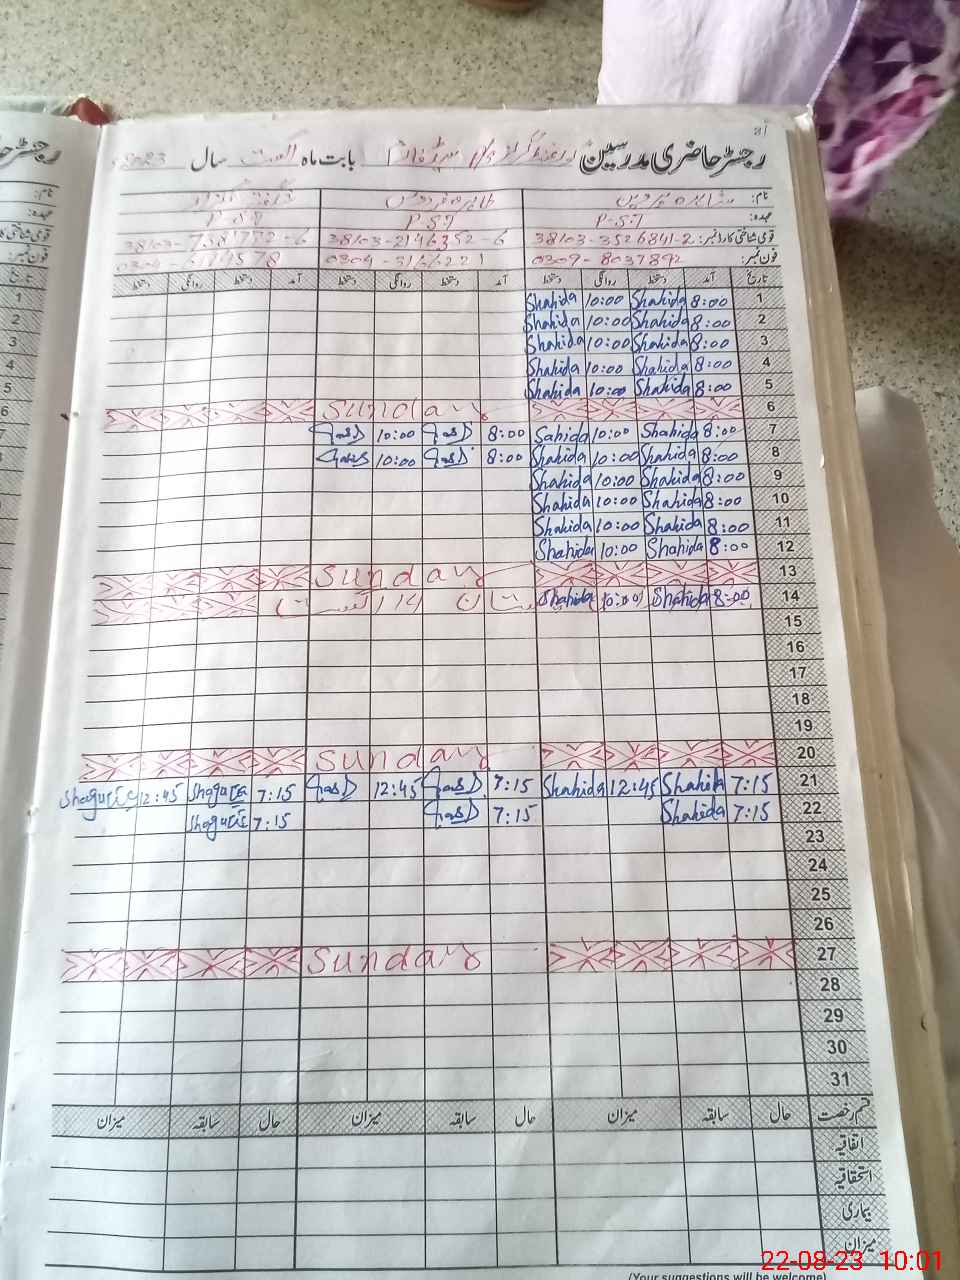 رجسٹر حاضری مدرسین بابت ماہ اگست سال 2023
نام:
عہدہ: P.S.T P.S.T P.S.T
قومی شناختی کارڈ نمبر: 38103-3526841-2 38103-2146352-6
فون نمبر: 0309-8037892 0304-3166221
تاریخ آمد دستخط روانگی دستخط آمد دستخط روانگی دستخط آمد دستخط روانگی دستخط
1 8:00 Shahida 10:00 Shahida
2 8:00 Shahida 10:00 Shahida
3 8:00 Shahida 10:00 Shahida
4 8:00 Shahida 10:00 Shahida
5 8:00 Shahida 10:00 Shahida
6 Sunday
7 8:00 Shahida 10:00 Sahida 8:00 10:00
8 8:00 Shahida 10:00 Shahida 8:00 10:00
9 8:00 Shahida 10:00 Shahida
10 8:00 Shahida 10:00 Shahida
11 8:00 Shahida 10:00 Shahida
12 8:00 Shahida 10:00 Shahida
13 Sunday
14 8:00 Shahida 10:00 Shahida 14 اگست
15
16
17
18
19
20 Sunday
21 7:15 Shahida 12:45 Shahida 7:15 12:45 7:15 12:45
22 7:15 Shaheda 7:15 7:15
23
24
25
26
27 Sunday
28
29
30
31
قسم رخصت حال سابقہ میزان حال سابقہ میزان حال سابقہ میزان
اتفاقیہ
استحقاقیہ
بیماری
میزان
(Your suggestions will be welcome)
22-08-23 10:01